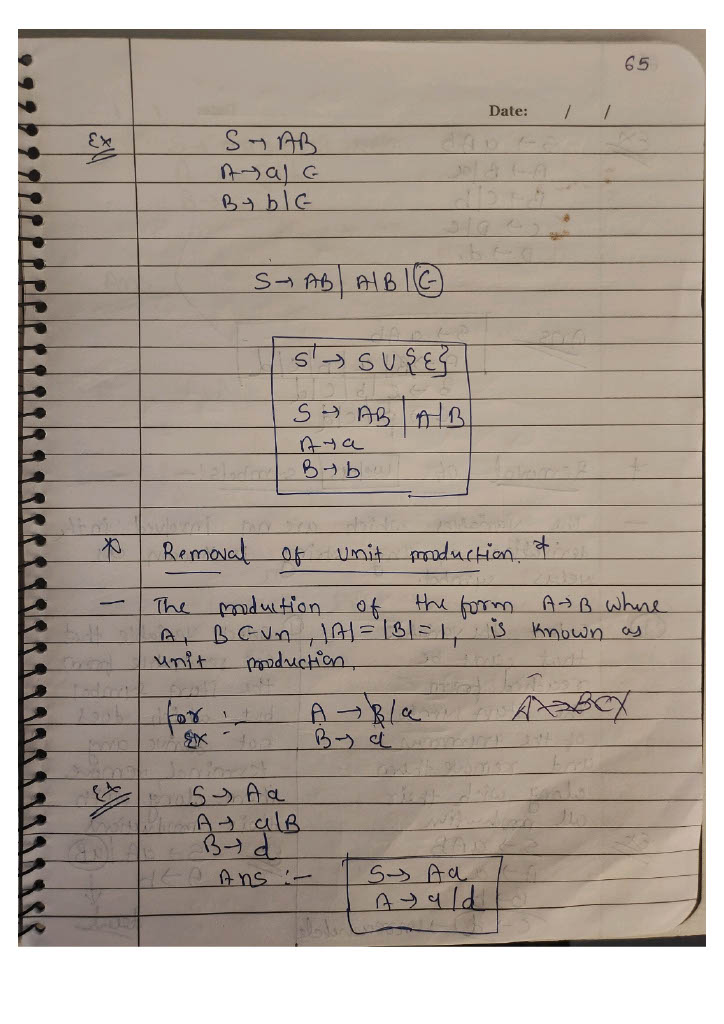 65
Date: / /
Ex S → AB
A → a | ϵ
B → b | ϵ
S → AB | A | B | ϵ
S' → S ∪ {ε}
S → AB | A | B
A → a
B → b
* Removal of unit production. *
— The production of the form A → B where
A, B ∈ Vn, |A| = |B| = 1, is known as
unit production.
for :- A → B/a
ex B → d
Ex S → Aa
A → a|B
B → d
Ans :- S → Aa
A → a/d